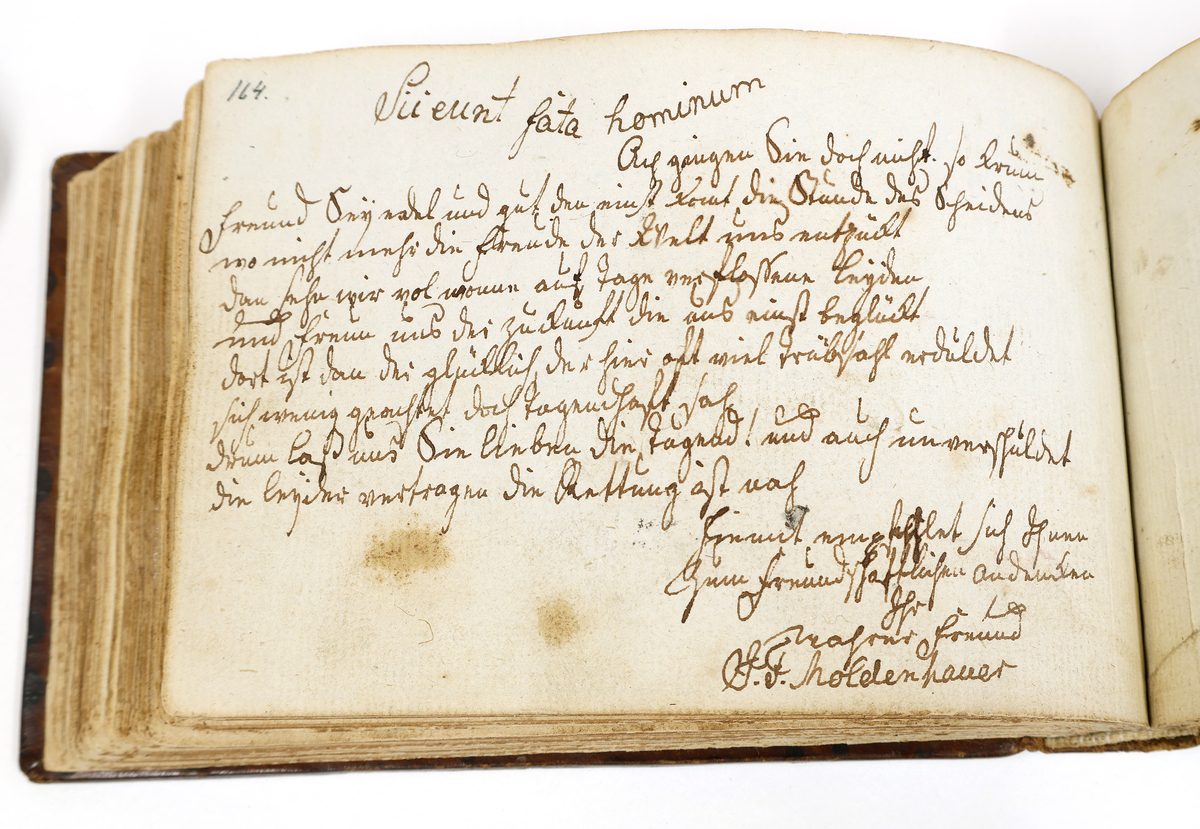 164.
Sii eunt fata hominum
Ach gingen Sie doch nicht so krum
Freund Sey edel und gut, den einst komt die Stunde des Scheidens
wo nicht mehr die Freude der Welt uns entzückt
dan sehn wir vol wonne auf Tage verfloßene Leyden
und freun uns der zuckunft die uns einst beglückt
dort ist dan der glücklich, der hier oft viel trübsahl erduldet
sich wenig geachtet doch tugendhaft sah
drum laß uns Sie lieben die Tugend! und auch unverschuldet
die leyden vertragen die Rettung ist nah
Hiemit empfehlet sich Ihnen
Zum freundschaftlichen andencken
Ihr
wahrer Freund
J. F. Moldenhauer